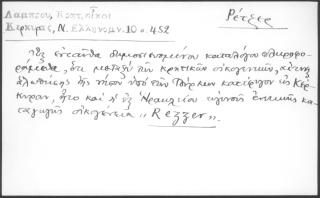 Λαμπρου, Κρητ. οἶκοι
Κερκυρας, Ν. Ελληνομν. 10 σ. 452
Ρέτζερ
Ἐκ ἐνταῦθα δημοσιευομένου καταλόγου πληροφο-
ρούμεθα, ὅτι μεταξὺ τῶν κρητικῶν οἰκογενειῶν, αἵτινες
τῆς νήσου ὑπὸ τῶν Τούρκων κατέφυγον εἰς Κέρ-
κυραν, ἦτο καὶ ἡ ἐξ Ἡρακλείου εὐγενὴς ἑνετικῆς κα-
ταγωγῆς οἰκογένεια "Rezzer".